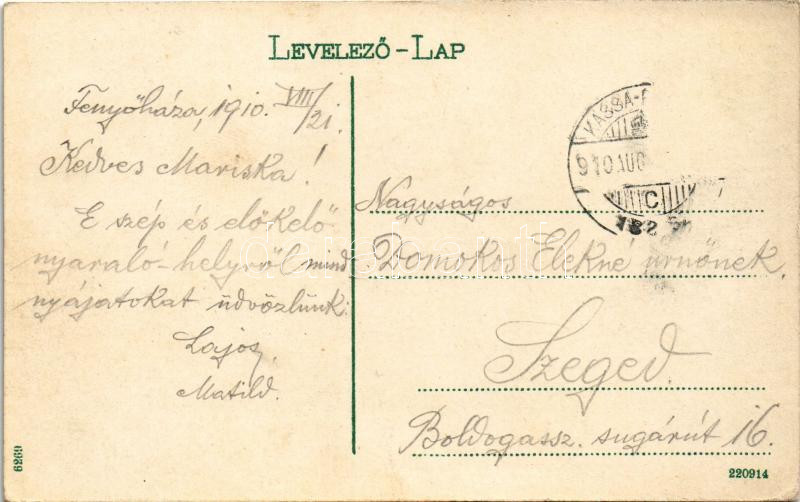 LEVELEZŐ-LAP
Fenyőháza, 1910. VIII/21.
Kedves Mariska!
E szép és előkelő
nyaraló-helyről mind
nyájatokat üdvözlünk:
Lajos,
Matild.
KASSA-
910 AUG
C
182
Nagyságos
Domokos Elekné úrnőnek,
Szeged.
Boldogassz. sugárút 16.
6269
220914